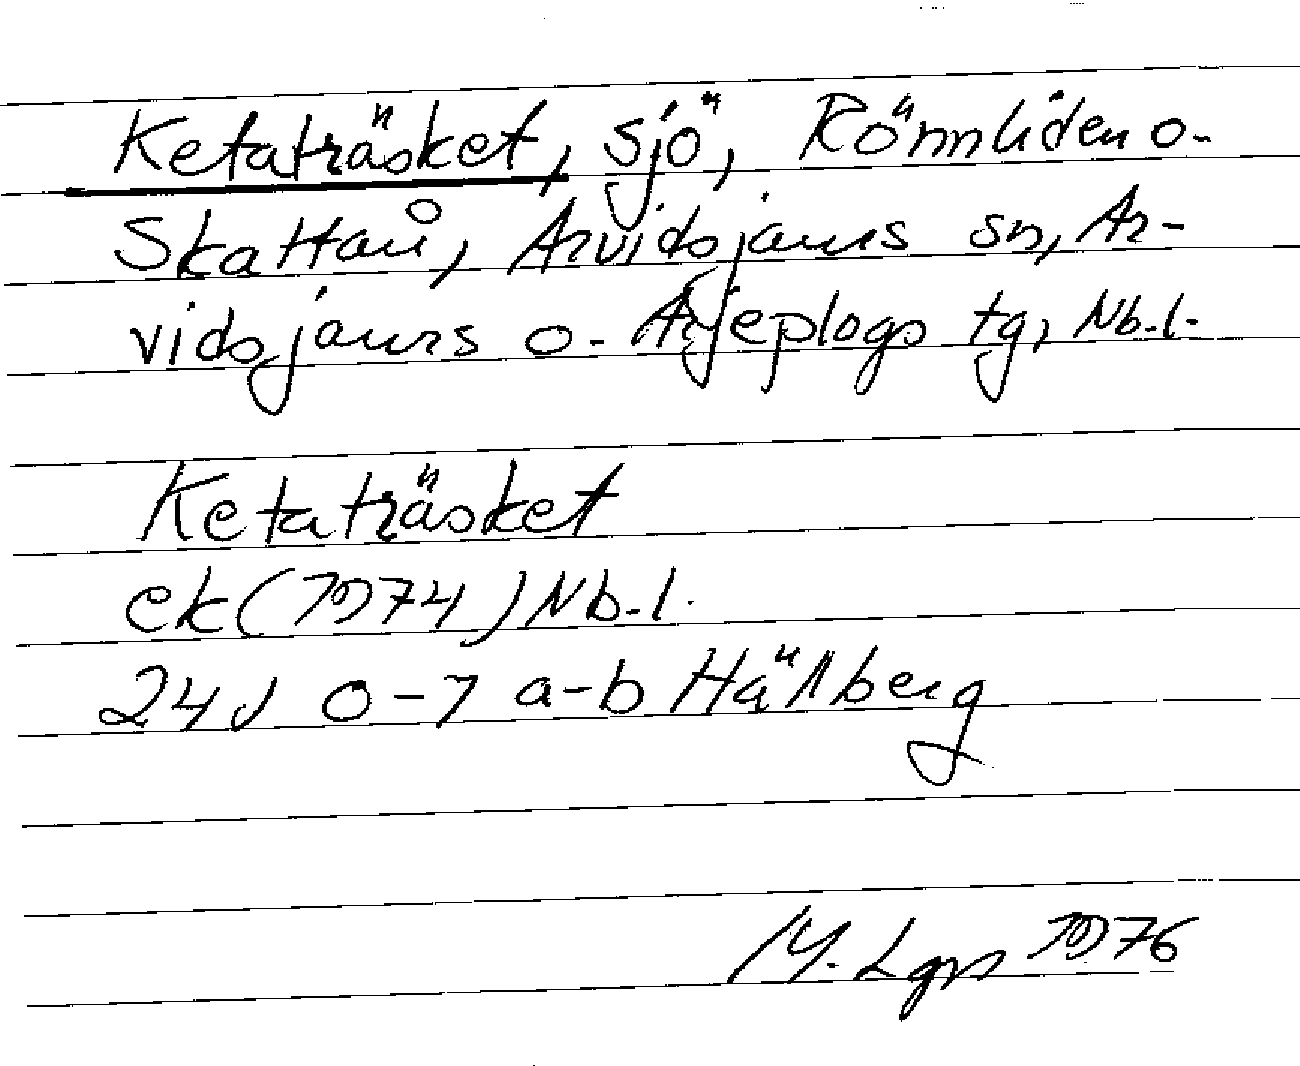 Ketaträsket, sjö, Rönnliden o.
Skattån, Arvidsjaurs sn, Ar-
vidsjaurs o. Arjeplogs tg, Nb.l.
Ketaträsket
ek (1974) Nb.l.
24J 0-7 a-b Hällberg
1976